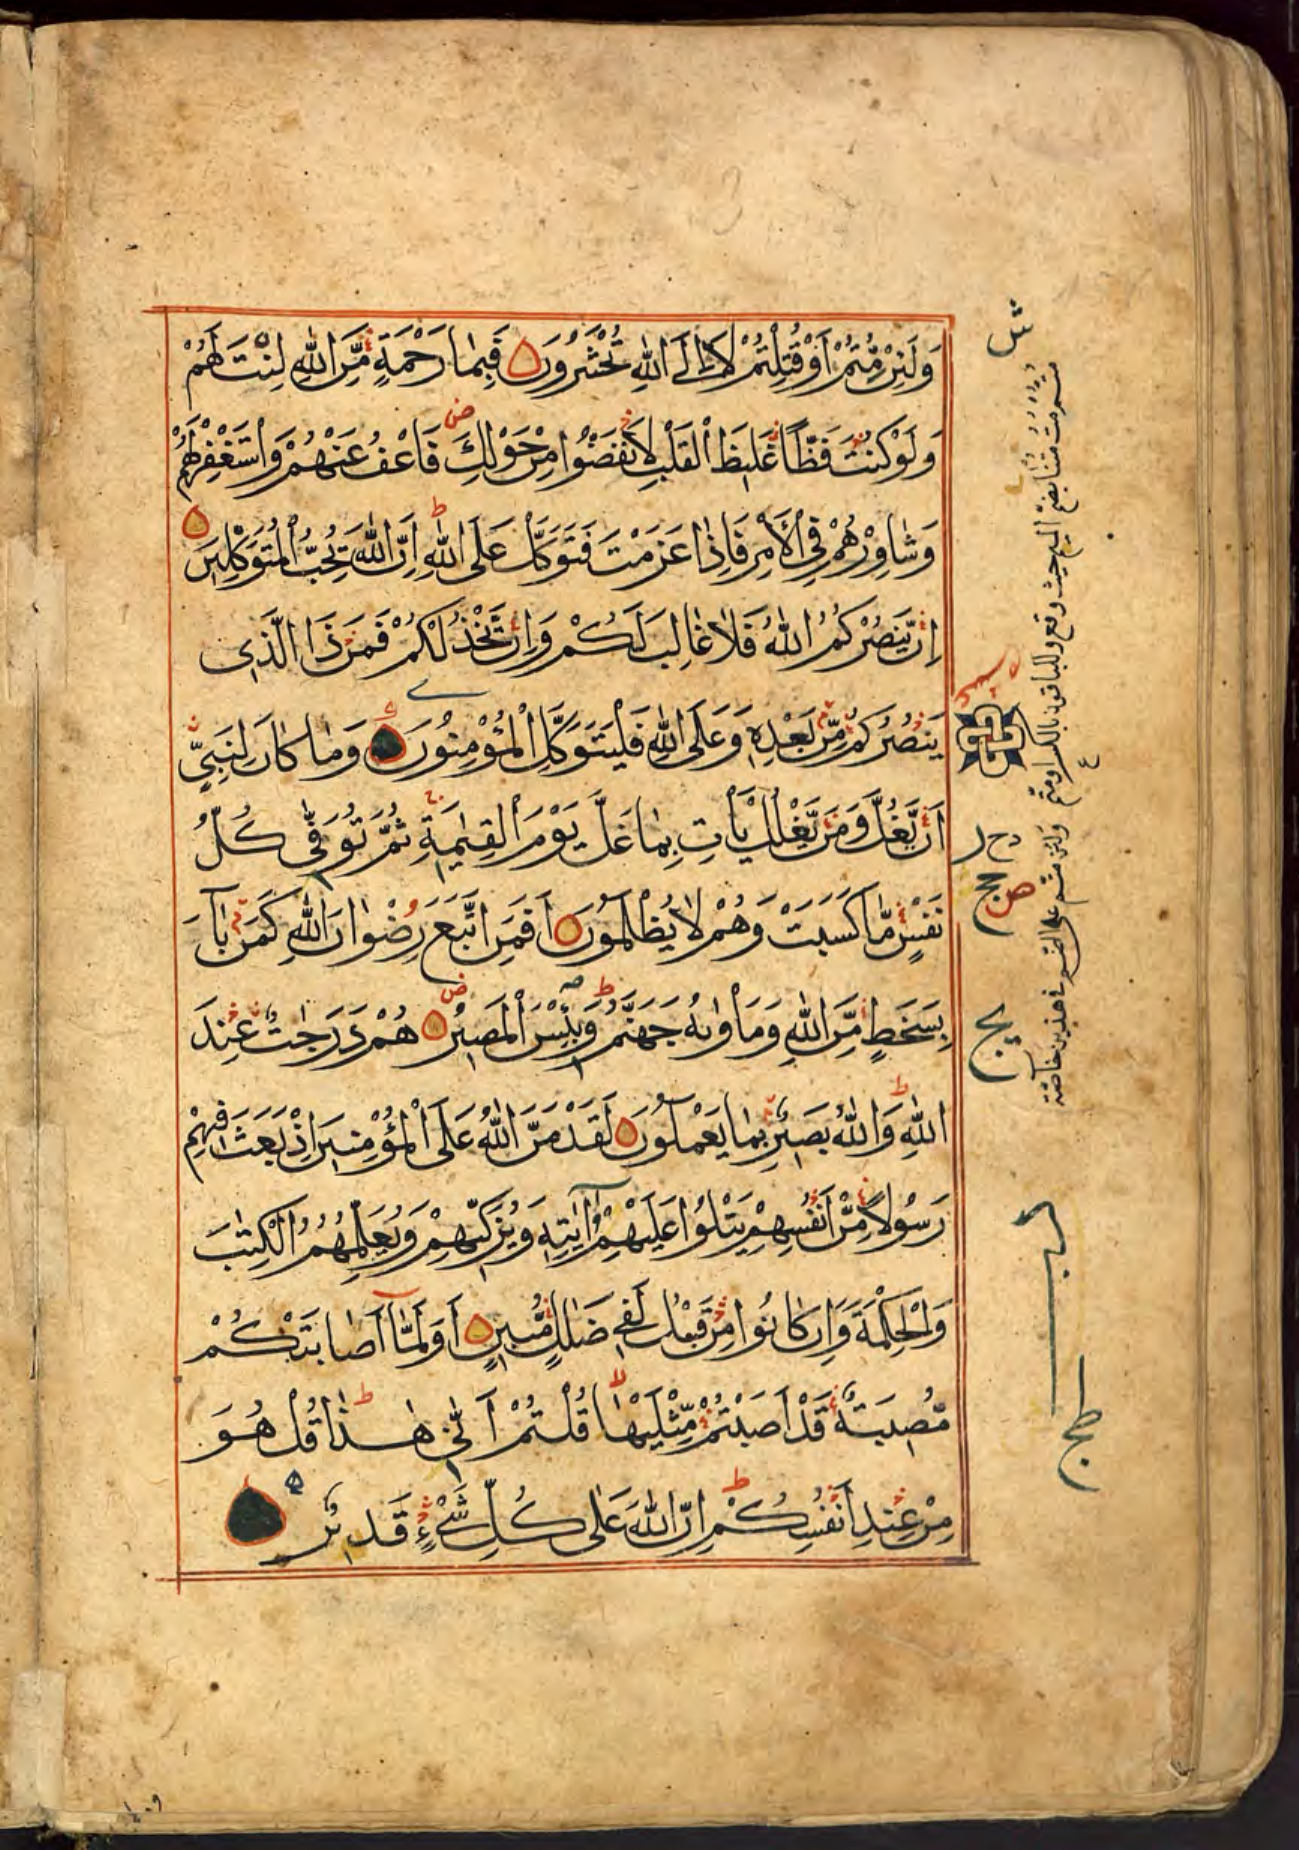 وَلَئِنْ مُّتُّمْ أَوْ قُتِلْتُمْ لَا۟اِلَى اللّٰهِ تُحْشَرُونَ فَبِمَا رَحْمَةٍ مِّنَ اللّٰهِ لِنْتَ لَهُمْ
وَلَوْ كُنْتَ فَظًّا غَلِيظَ الْقَلْبِ لَانْفَضُّوا مِنْ حَوْلِكَ فَاعْفُ عَنْهُمْ وَاسْتَغْفِرْ لَهُمْ
وَشَاوِرْهُمْ فِي الْأَمْرِ فَإِذَا عَزَمْتَ فَتَوَكَّلْ عَلَى اللّٰهِ إِنَّ اللّٰهَ يُحِبُّ الْمُتَوَكِّلِينَ
إِنْ يَّنْصُرْكُمُ اللّٰهُ فَلَا غَالِبَ لَكُمْ وَإِنْ يَّخْذُلْكُمْ فَمَنْ ذَا الَّذِي
يَنْصُرُكُمْ مِّنْ بَعْدِهِ وَعَلَى اللّٰهِ فَلْيَتَوَكَّلِ الْمُؤْمِنُونَ وَمَا كَانَ لِنَبِيٍّ
أَنْ يَّغُلَّ وَمَنْ يَّغْلُلْ يَأْتِ بِمَا غَلَّ يَوْمَ الْقِيٰمَةِ ثُمَّ تُوَفّٰى كُلُّ
نَفْسٍ مَّا كَسَبَتْ وَهُمْ لَا يُظْلَمُونَ أَفَمَنِ اتَّبَعَ رِضْوَانَ اللّٰهِ كَمَنْ بَآءَ
بِسَخَطٍ مِّنَ اللّٰهِ وَمَأْوٰىهُ جَهَنَّمُ وَبِئْسَ الْمَصِيرُ هُمْ دَرَجٰتٌ عِنْدَ
اللّٰهِ وَاللّٰهُ بَصِيرٌ بِمَا يَعْمَلُونَ لَقَدْ مَنَّ اللّٰهُ عَلَى الْمُؤْمِنِينَ إِذْ بَعَثَ فِيهِمْ
رَسُولًا مِّنْ أَنْفُسِهِمْ يَتْلُوا عَلَيْهِمْ اٰيٰتِهِ وَيُزَكِّيهِمْ وَيُعَلِّمُهُمُ الْكِتٰبَ
وَالْحِكْمَةَ وَإِنْ كَانُوا مِنْ قَبْلُ لَفِي ضَلٰلٍ مُّبِينٍ أَوَلَمَّآ أَصَابَتْكُمْ
مُّصِيبَةٌ قَدْ أَصَبْتُمْ مِّثْلَيْهَا قُلْتُمْ أَنّٰى هٰذَا قُلْ هُوَ
مِنْ عِنْدِ أَنْفُسِكُمْ إِنَّ اللّٰهَ عَلَى كُلِّ شَيْءٍ قَدِيرٌ